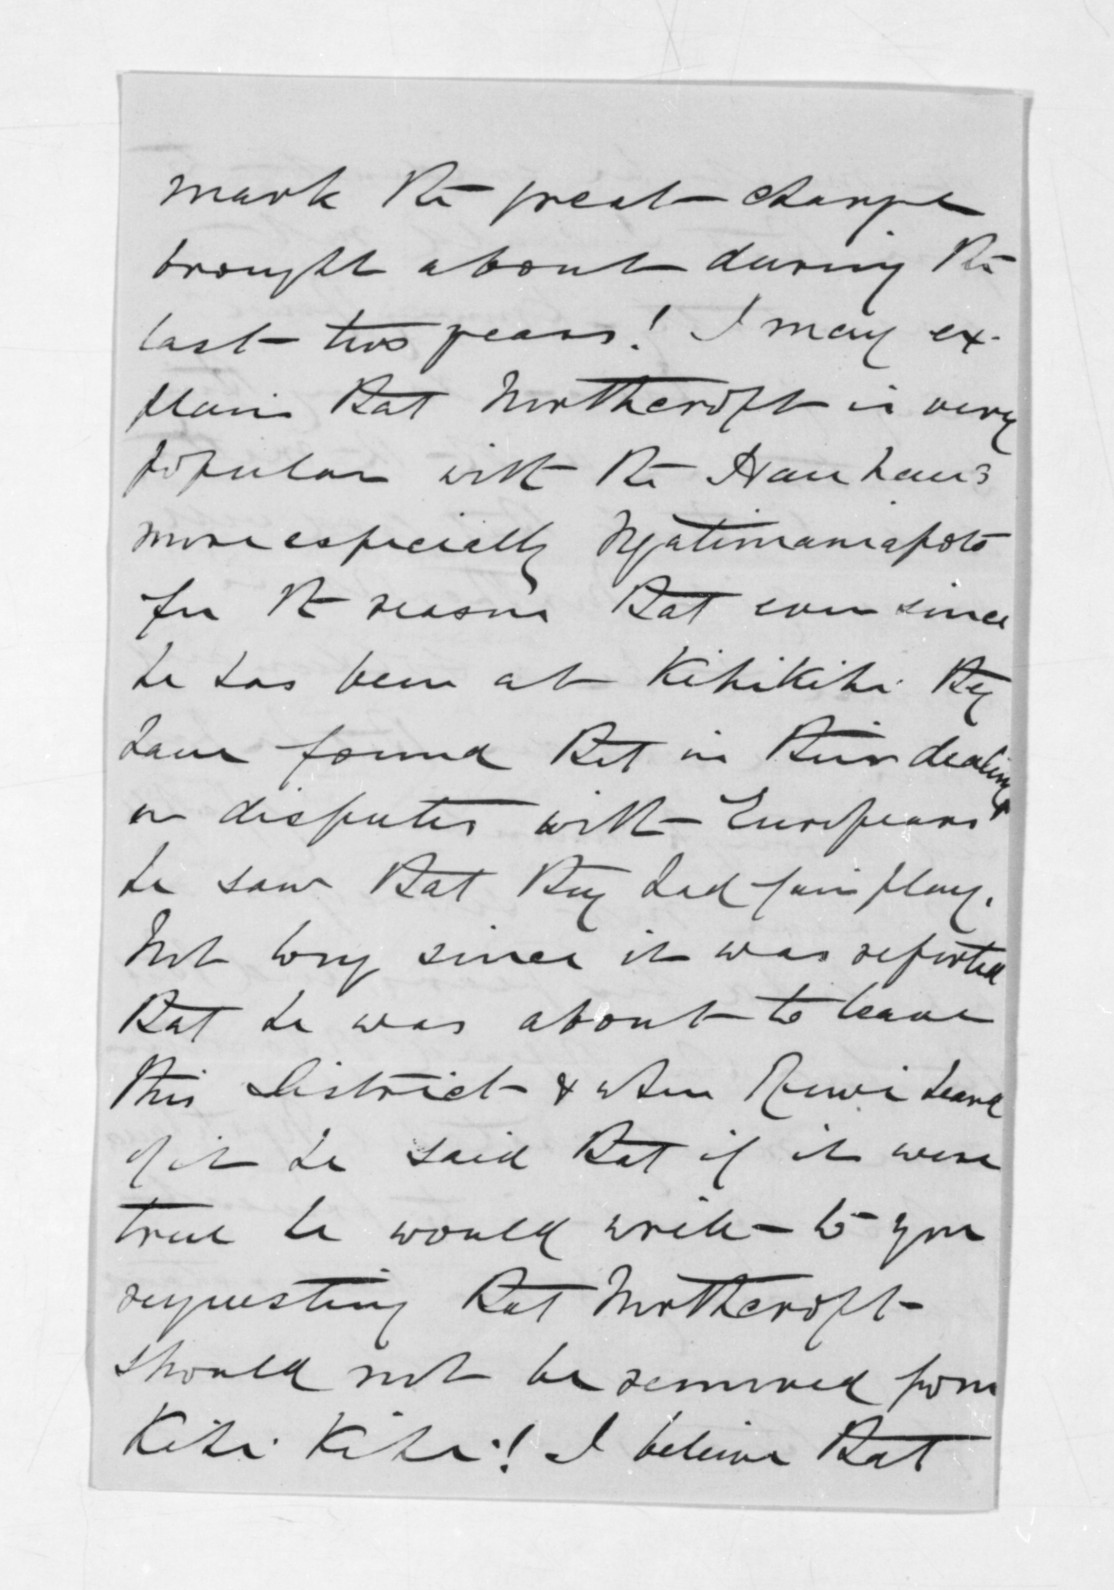 mark the great change
brought about during the
last two years! I may ex-
plain that Northcroft is very
popular with the Hauhaus
more especially Ngatimaniapoto
for the reason that ever since
he has been at Kihikihi they
have found that in their dealings
or disputes with Europeans
he saw that they had fair play.
Not long since it was reported
that he was about to leave
this District & when Rewi heard
of it he said that if it were
true he would write to you
requesting that Northcroft
should not be removed from
Kihi Kihi! I believe that